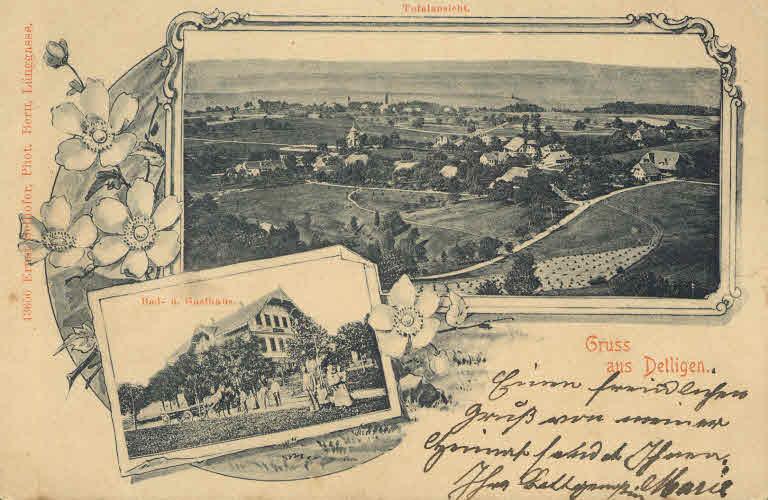 Totalansicht.
13650 Ernst Selhofer, Phot. Bern, Länggasse.
Bad- u. Gasthaus.
Gruss
aus Detligen.
Einen freundlichen
Gruß von meiner
Heimat sendet Ihnen,
Ihre
Marie